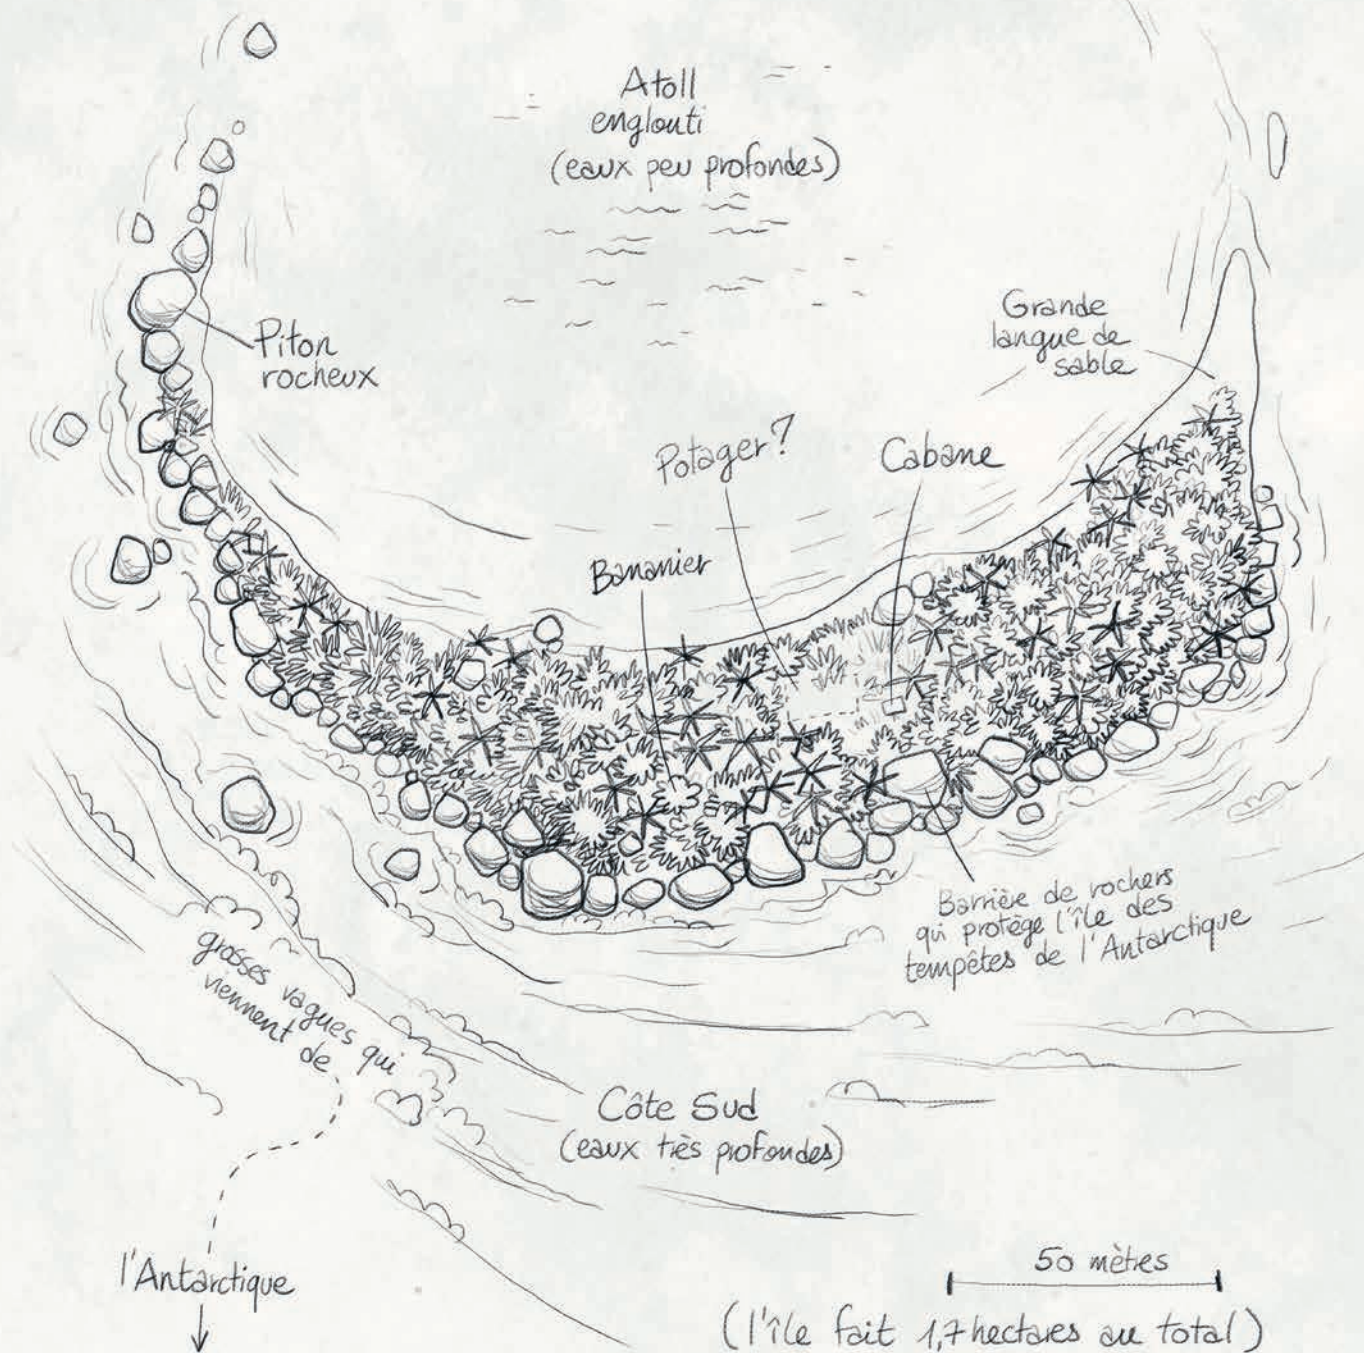 Atoll
englouti
(eaux peu profondes)
Grande
langue de
sable
Piton
rocheux
Potager?
Cabane
Bananier
Barrière de rochers
qui protège l'île des
tempêtes de l'Antarctique
grosses vagues qui
viennent de
Côte Sud
(eaux très profondes)
l'Antarctique
50 mètres
(l'île fait 1,7 hectares au total)